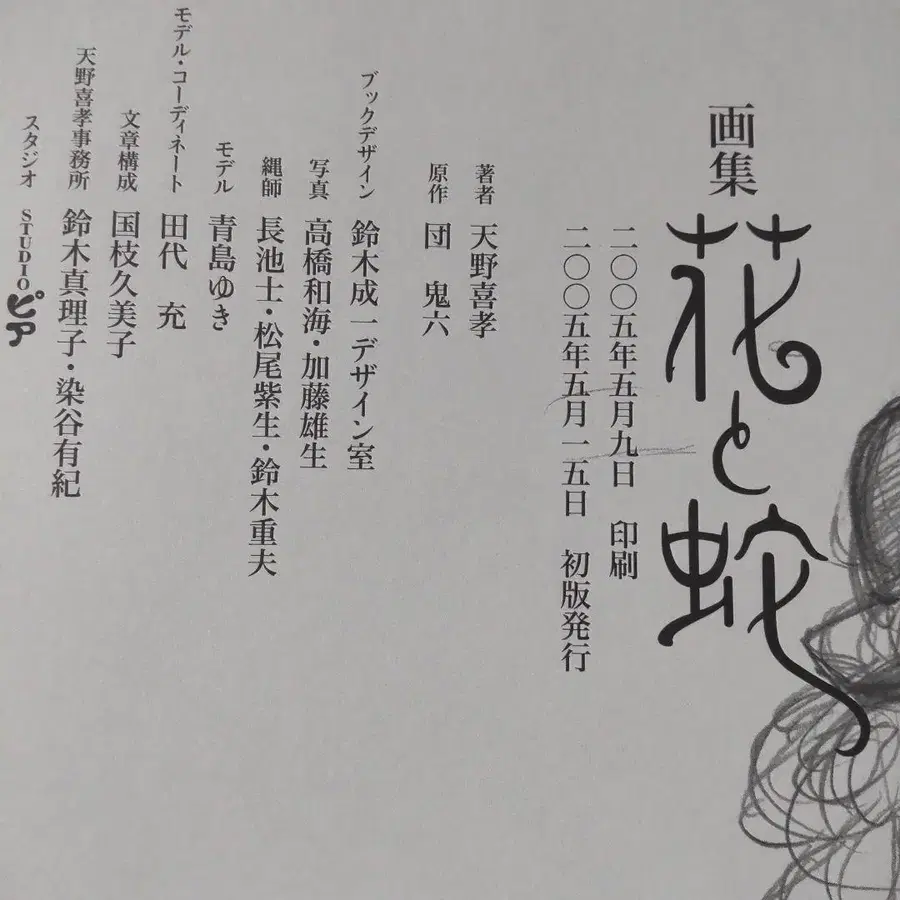 画集
花と蛇
二〇〇五年五月九日 印刷
二〇〇五年五月一五日 初版発行
著者 天野喜孝
原作 団 鬼六
ブックデザイン 鈴木成一デザイン室
写真 高橋和海・加藤雄生
縄師 長池士・松尾紫生・鈴木重夫
モデル 青島ゆき
モデル・コーディネート 田代 充
文章構成 国枝久美子
天野喜孝事務所 鈴木真理子・染谷有紀
スタジオ STUDIOピア